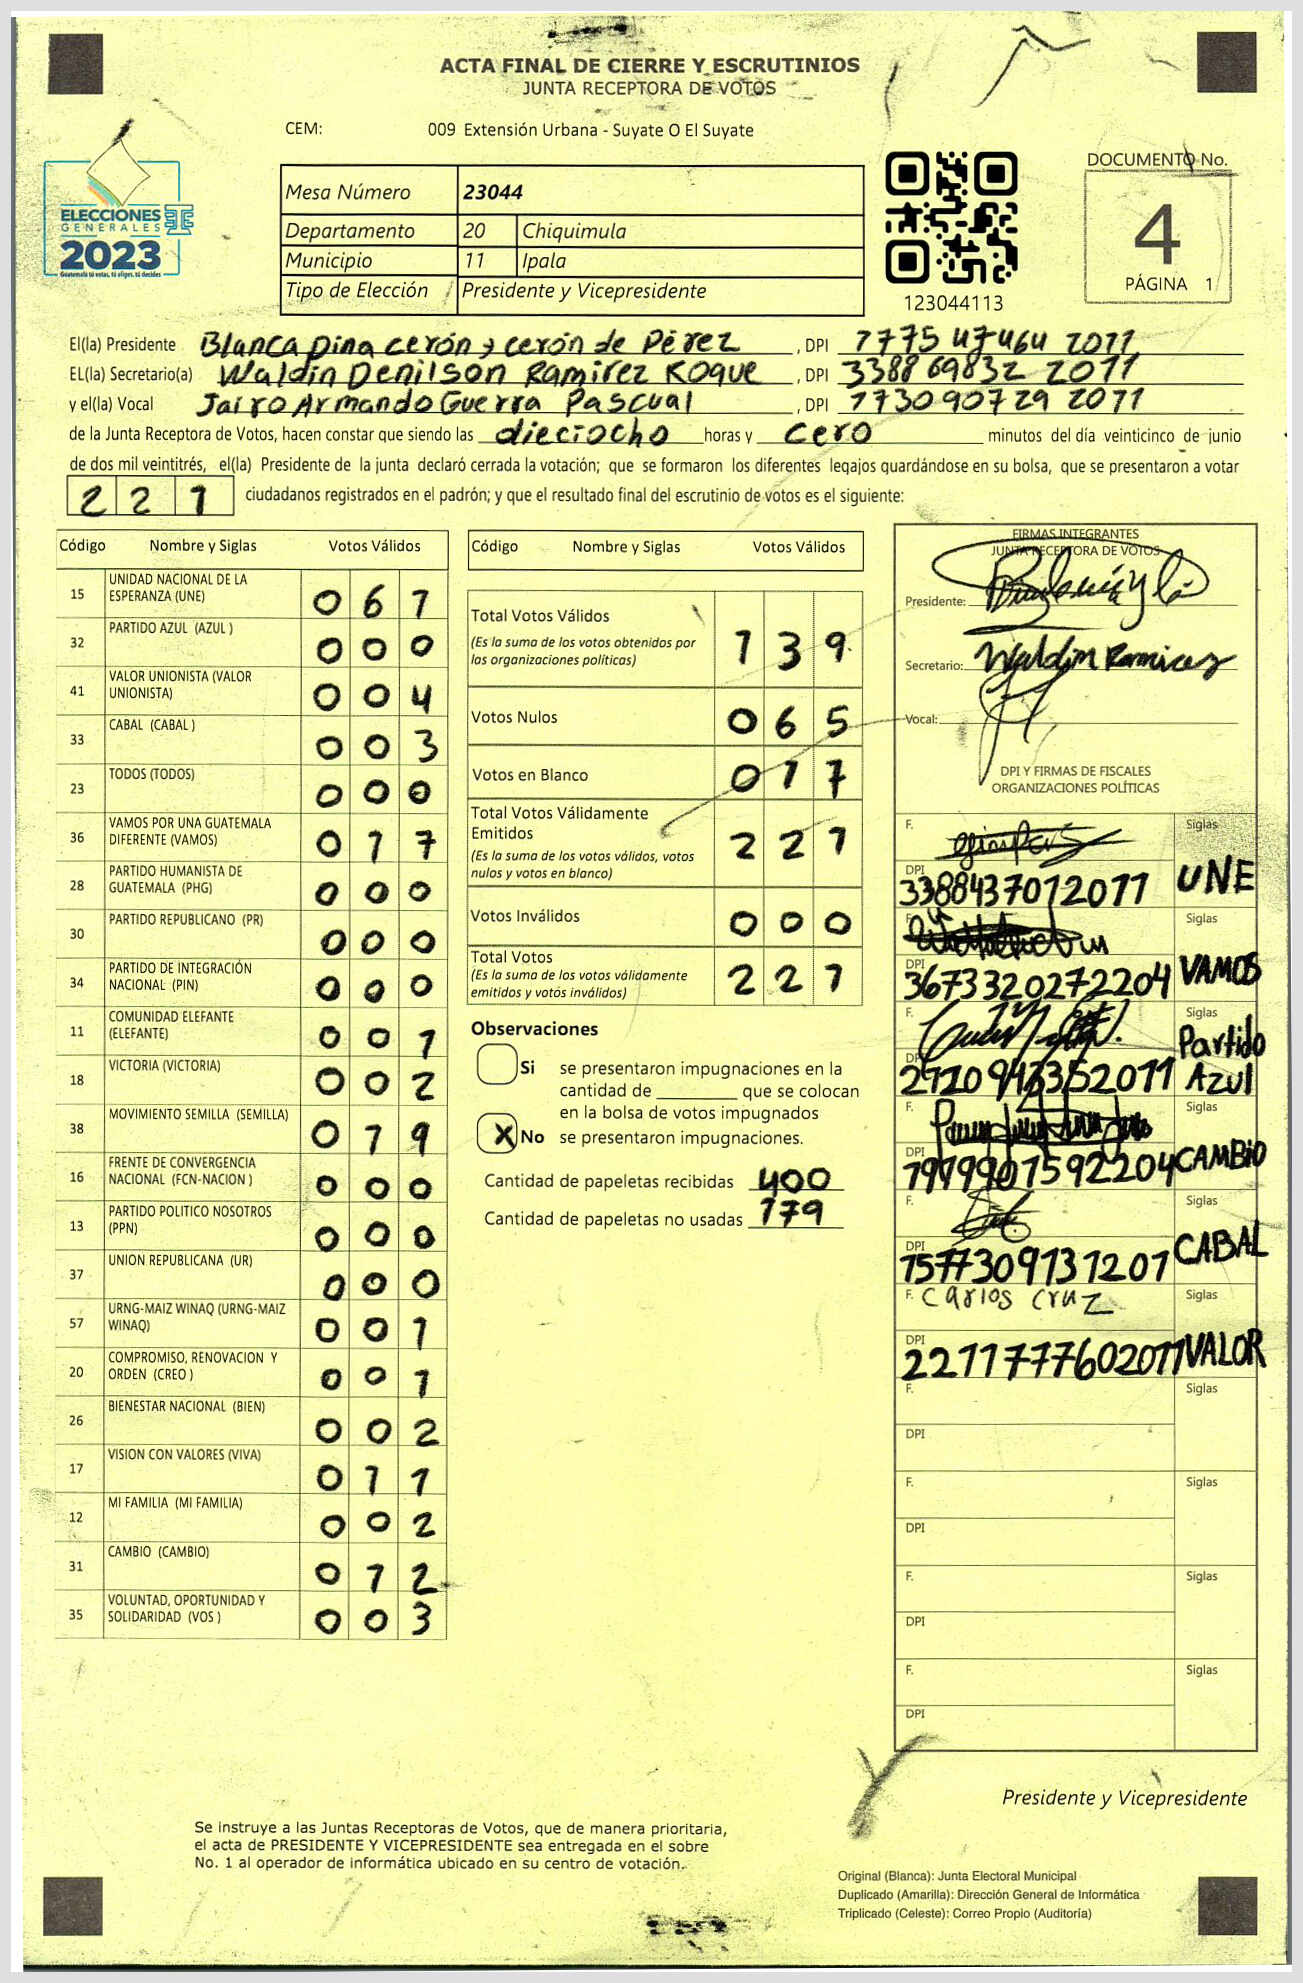 ACTA FINAL DE CIERRE Y ESCRUTINIOS
JUNTA RECEPTORA DE VOTOS
CEM: 009 Extensión Urbana - Suyate O El Suyate
ELECCIONES
GENERALES
2023
Guatemala tú votas, tú eliges, tú decides
Mesa Número 23044
Departamento 20 Chiquimula
Municipio 11 Ipala
Tipo de Elección Presidente y Vicepresidente
123044113
DOCUMENTO No.
4
PÁGINA 1
El(la) Presidente Blanca Dina cerón y cerón de Pérez , DPI 1775 47464 2011
EL(la) Secretario(a) Waldin Denilson Ramirez Roque , DPI 3388 69832 2011
y el(la) Vocal Jairo Armando Guerra Pascual , DPI 1730 90729 2011
de la Junta Receptora de Votos, hacen constar que siendo las dieciocho horas y cero minutos del día veinticinco de junio
de dos mil veintitrés, el(la) Presidente de la junta declaró cerrada la votación; que se formaron los diferentes legajos guardándose en su bolsa, que se presentaron a votar
2 2 1 ciudadanos registrados en el padrón; y que el resultado final del escrutinio de votos es el siguiente:
Código Nombre y Siglas Votos Válidos
15 UNIDAD NACIONAL DE LA ESPERANZA (UNE) 0 6 1
32 PARTIDO AZUL (AZUL ) 0 0 0
41 VALOR UNIONISTA (VALOR UNIONISTA) 0 0 4
33 CABAL (CABAL ) 0 0 3
23 TODOS (TODOS) 0 0 0
36 VAMOS POR UNA GUATEMALA DIFERENTE (VAMOS) 0 1 7
28 PARTIDO HUMANISTA DE GUATEMALA (PHG) 0 0 0
30 PARTIDO REPUBLICANO (PR) 0 0 0
34 PARTIDO DE INTEGRACIÓN NACIONAL (PIN) 0 0 0
11 COMUNIDAD ELEFANTE (ELEFANTE) 0 0 1
18 VICTORIA (VICTORIA) 0 0 2
38 MOVIMIENTO SEMILLA (SEMILLA) 0 1 9
16 FRENTE DE CONVERGENCIA NACIONAL (FCN-NACION ) 0 0 0
13 PARTIDO POLITICO NOSOTROS (PPN) 0 0 0
37 UNION REPUBLICANA (UR) 0 0 0
57 URNG-MAIZ WINAQ (URNG-MAIZ WINAQ) 0 0 1
20 COMPROMISO, RENOVACION Y ORDEN (CREO ) 0 0 1
26 BIENESTAR NACIONAL (BIEN) 0 0 2
17 VISION CON VALORES (VIVA) 0 1 1
12 MI FAMILIA (MI FAMILIA) 0 0 2
31 CAMBIO (CAMBIO) 0 1 2
35 VOLUNTAD, OPORTUNIDAD Y SOLIDARIDAD (VOS ) 0 0 3
Código Nombre y Siglas Votos Válidos
Total Votos Válidos 1 3 9
(Es la suma de los votos obtenidos por
las organizaciones políticas)
Votos Nulos 0 6 5
Votos en Blanco 0 1 7
Total Votos Válidamente
Emitidos 2 2 1
(Es la suma de los votos válidos, votos
nulos y votos en blanco)
Votos Inválidos 0 0 0
Total Votos 2 2 1
(Es la suma de los votos válidamente
emitidos y votos inválidos)
Observaciones
Si se presentaron impugnaciones en la
cantidad de ________ que se colocan
en la bolsa de votos impugnados
X No se presentaron impugnaciones.
Cantidad de papeletas recibidas 400
Cantidad de papeletas no usadas 179
FIRMAS INTEGRANTES
JUNTA RECEPTORA DE VOTOS
Presidente:
Secretario: Waldin Ramirez
Vocal:
DPI Y FIRMAS DE FISCALES
ORGANIZACIONES POLÍTICAS
F. Siglas
DPI 3388437012011 UNE
F. Siglas
DPI 3673320272204 VAMOS
F. Siglas
DPI Partido Azul
F. Siglas
DPI 1919901592204 CAMBIO
F. Siglas
DPI 1577309131201 CABAL
F. Carlos Cruz Siglas
DPI 2211777602011 VALOR
F. Siglas
DPI
F. Siglas
DPI
F. Siglas
DPI
F. Siglas
DPI
Presidente y Vicepresidente
Se instruye a las Juntas Receptoras de Votos, que de manera prioritaria,
el acta de PRESIDENTE Y VICEPRESIDENTE sea entregada en el sobre
No. 1 al operador de informática ubicado en su centro de votación.
Original (Blanca): Junta Electoral Municipal
Duplicado (Amarilla): Dirección General de Informática
Triplicado (Celeste): Correo Propio (Auditoría)